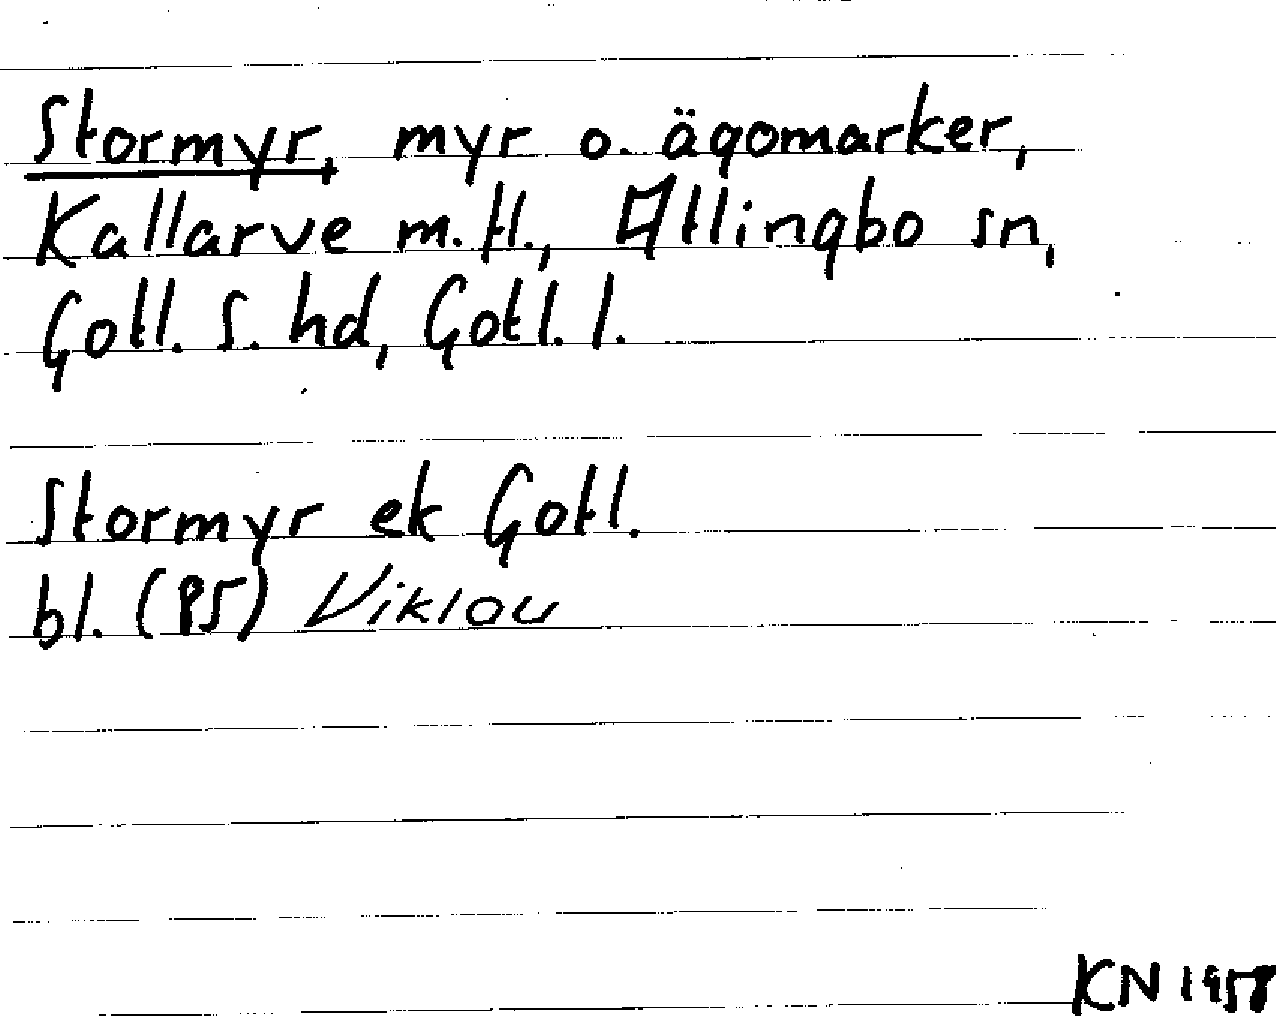 Stormyr, myr o. ägomarker,
Kallarve m.fl., Atlingbo sn,
Gotl. S. hd, Gotl. l.
Stormyr ek Gotl.
bl. (P5) Viklau
KN 1958